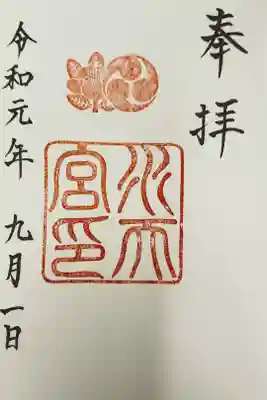 奉拝
水天宮印
令和元年 九月一日